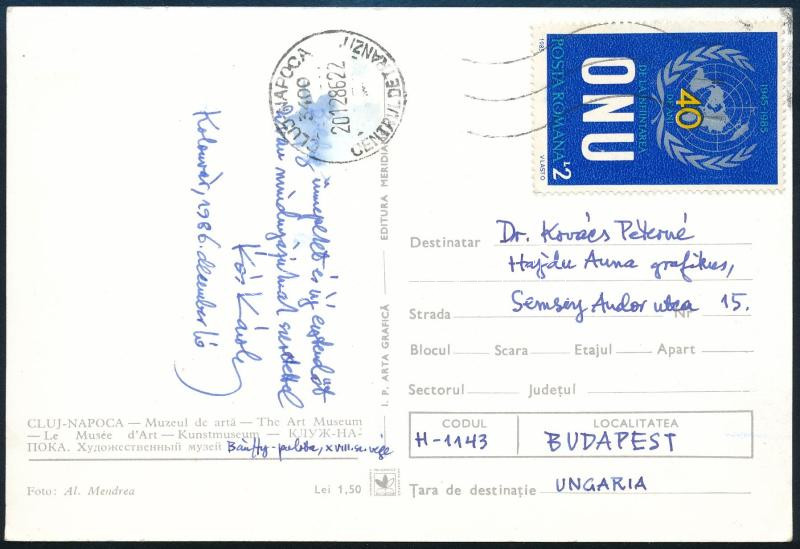 Kolozsvár, 1986. december hó
ünnepeket és új esztendőt
mindnyájuknak szeretettel
Kós Károly
CLUJ-NAPOCA
3400
20128622
CENTRUL DE TRANZIT
1985
POSTA ROMANA
ONU
40
DE LA INFIINTAREA
DE ANI
1945-1985
VLASTO
L2
I. P. ARTA GRAFICĂ
EDITURA MERIDIANE
Destinatar Dr. Kovács Péterné
Hajdu Anna grafikus,
Strada Semsey Andor utca Nr. 15.
Blocul Scara Etajul Apart
Sectorul Județul
CODUL LOCALITATEA
H-1143 BUDAPEST
Țara de destinație UNGARIA
CLUJ-NAPOCA — Muzeul de artă — The Art Museum
— Le Musée d'Art — Kunstmuseum — КЛУЖ-НА-
ПОКА. Художественный музей Bánffy-palota, XVIII. sz. vége
Foto: Al. Mendrea Lei 1,50